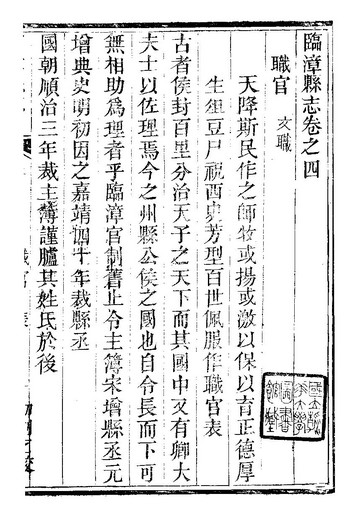 臨漳縣志卷之四
職官 文職
天降斯民作之師牧或揚或激以保以育正德厚
生俎豆尸祝西史芳型百世佩服作職官表
古者侯封百里分治天子之天下而其國中又有卿大
夫士以佐理焉今之州縣公侯之國也自令長而下可
無相助為理者乎臨漳官制舊止令主簿宋增縣丞元
增典史明初因之嘉靖四十年裁縣丞
國朝順治三年裁主簿謹臚其姓氏於後